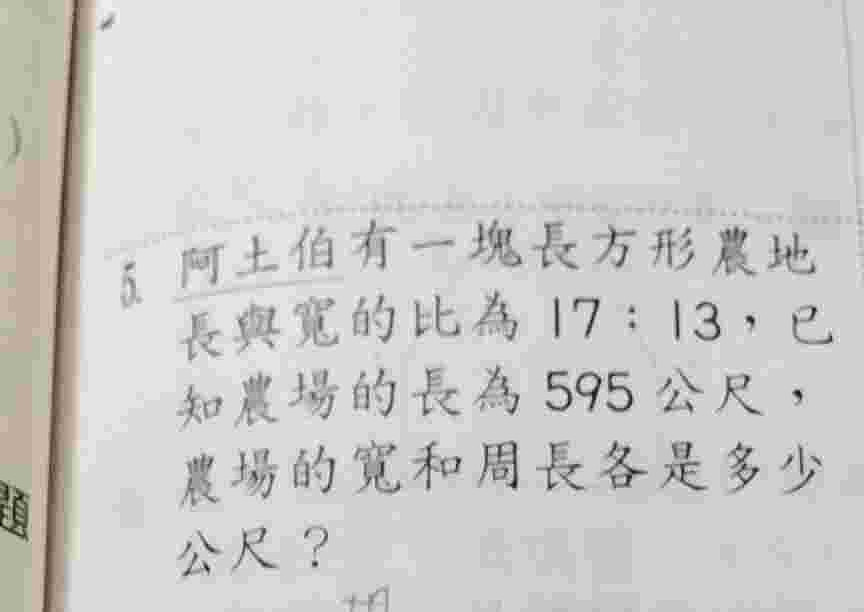 5. 阿土伯有一塊長方形農地
長與寬的比為 17：13，已
知農場的長為 595 公尺，
農場的寬和周長各是多少
公尺？
題